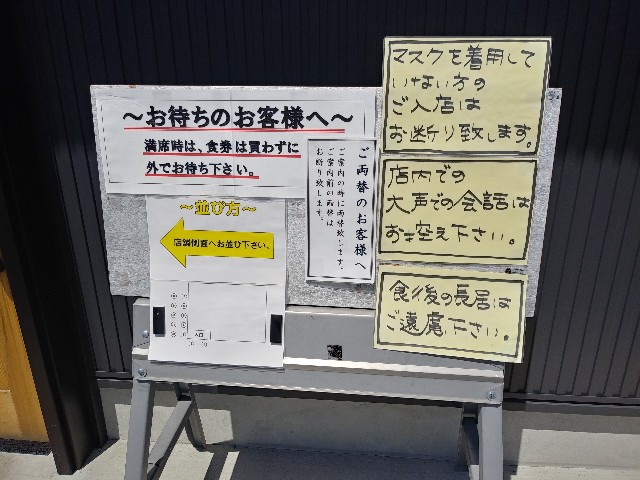 ～お待ちのお客様へ～
満席時は、食券は買わずに
外でお待ち下さい。
～並び方～
店舗側面へお並び下さい。
ご両替のお客様へ
ご案内の時に両替致します。
ご案内前の両替は
お断り致します。
マスクを着用して
いない方の
ご入店は
お断り致します。
店内での
大声での会話は
お控え下さい。
食後の長居は
ご遠慮下さい。